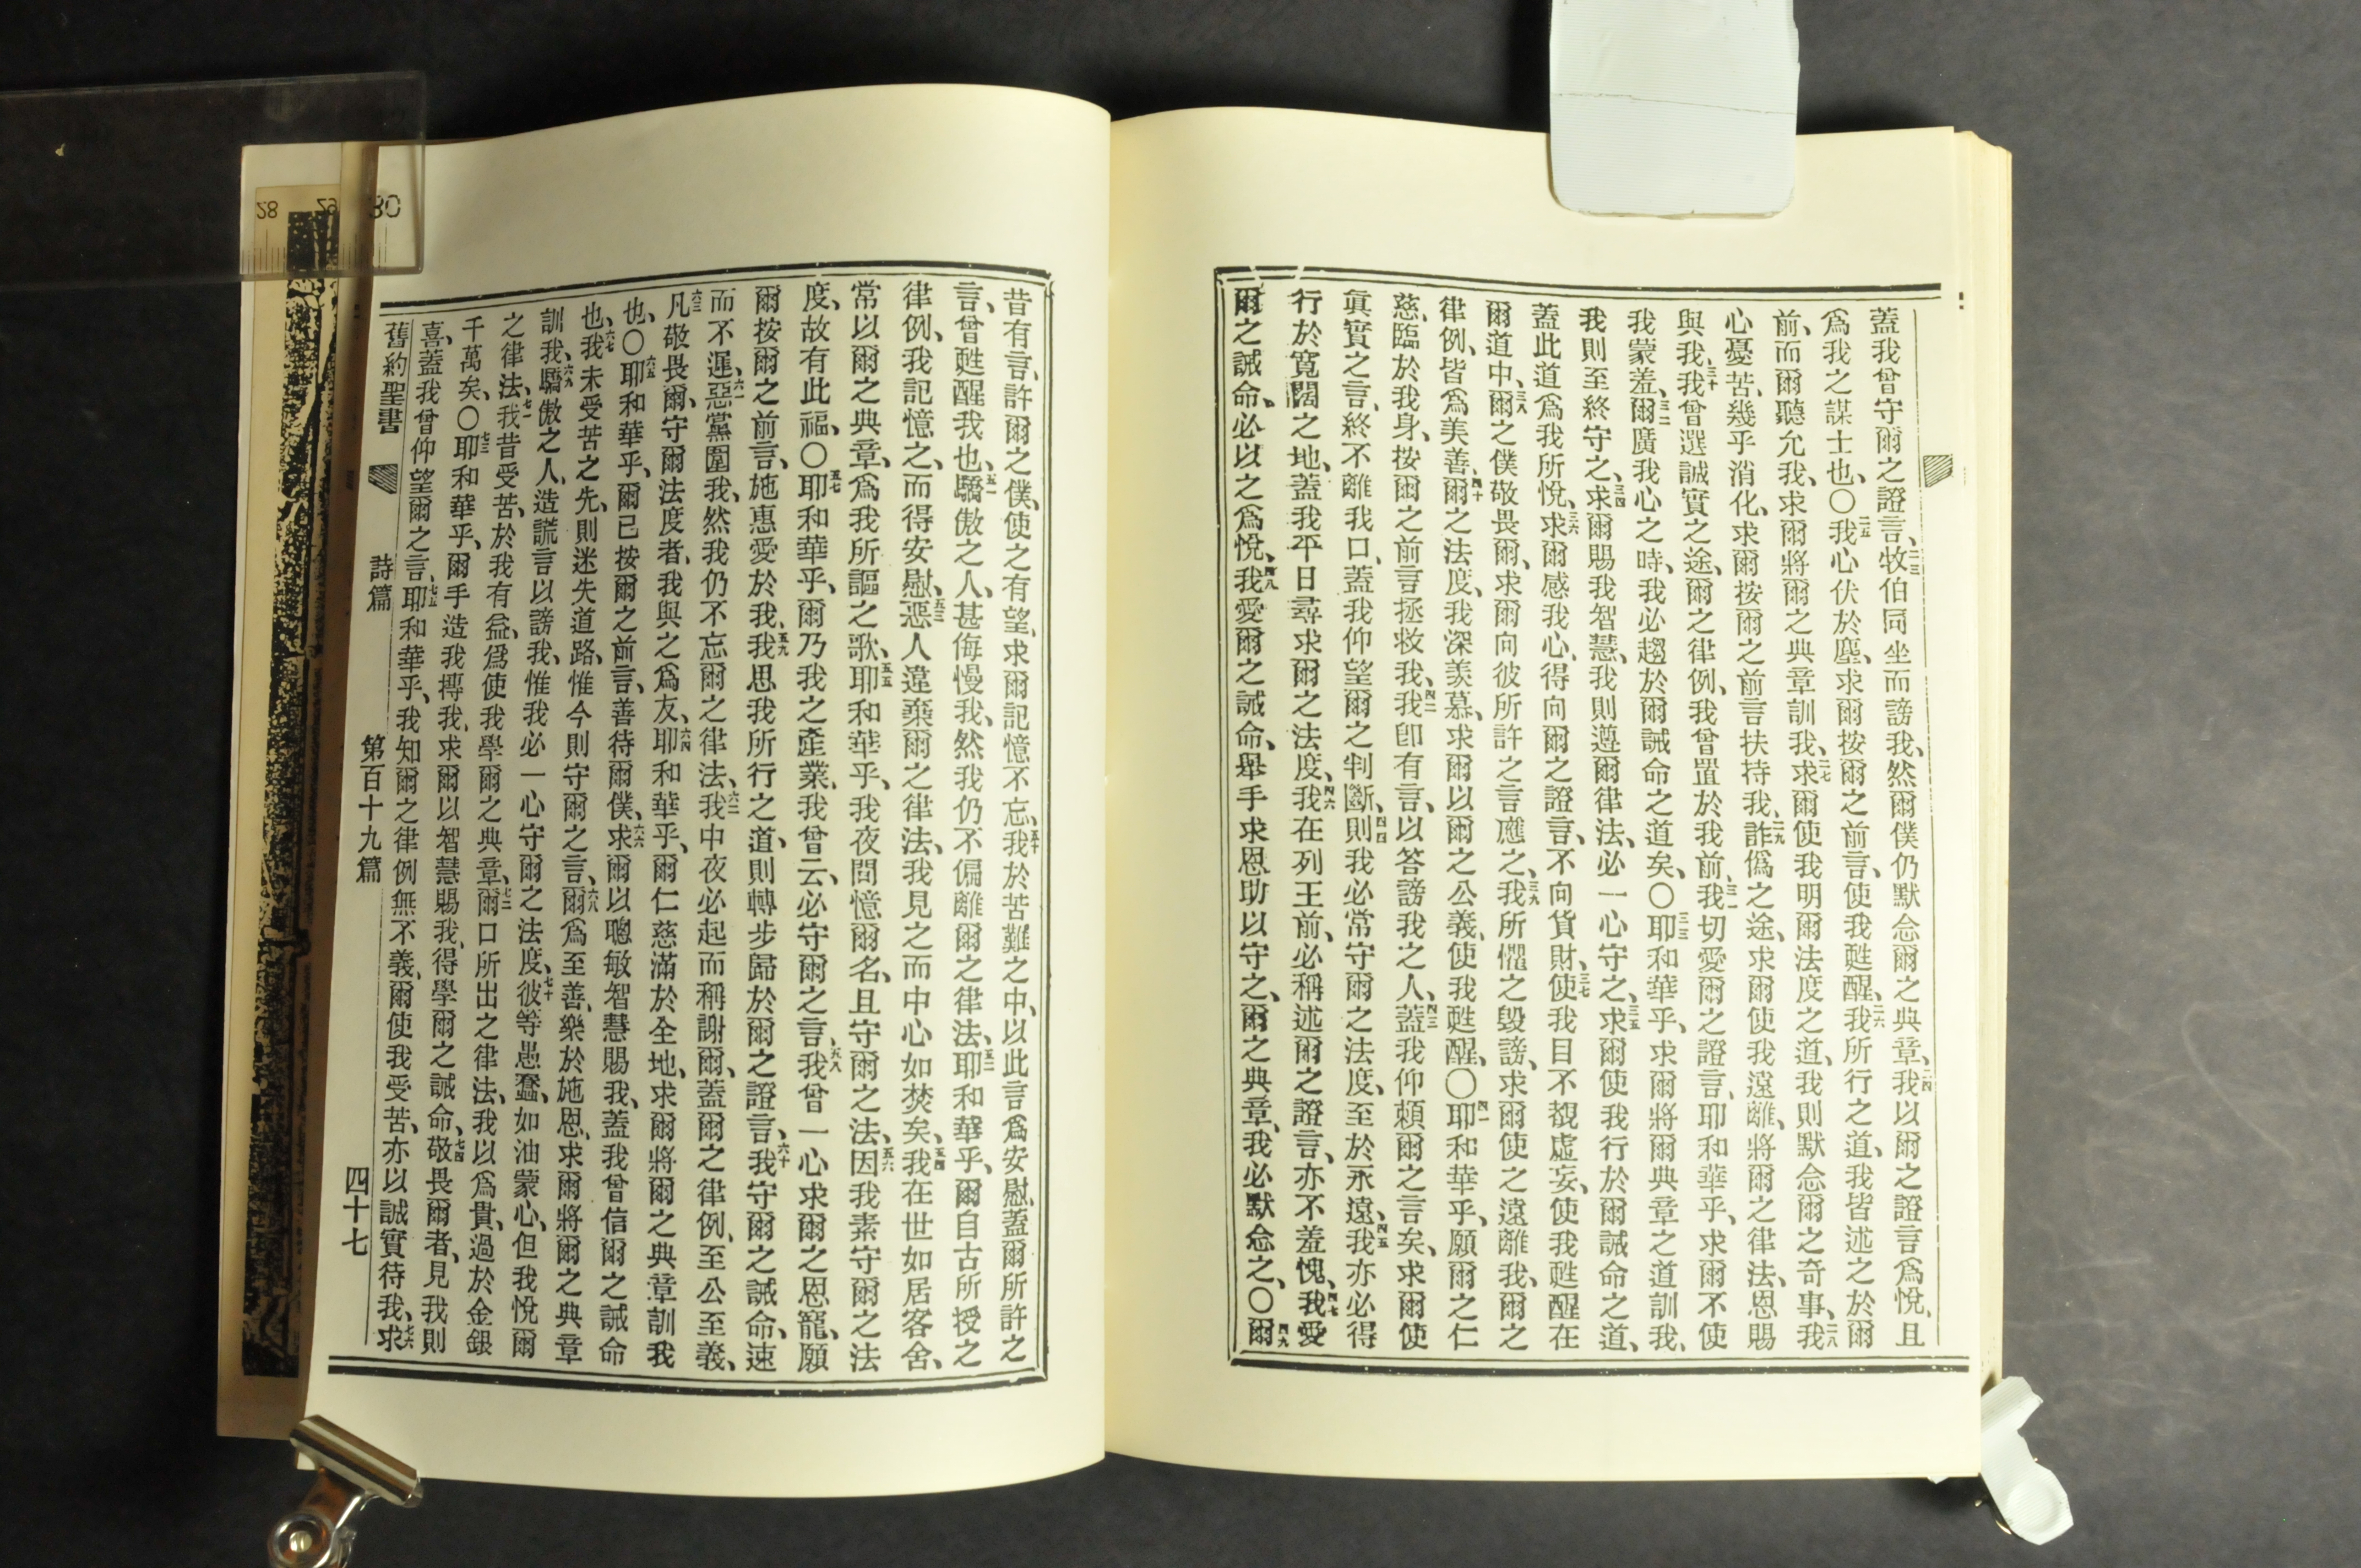 蓋我曾守爾之證言、二三牧伯同坐而謗我、然爾僕仍默念爾之典章、二四我以爾之證言爲悅、且
爲我之謀士也、〇二五我心伏於塵、求爾按爾之前言、使我甦醒、二六我所行之道、我皆述之於爾
前、而爾聽允我、求爾將爾之典章訓我、二七求爾使我明爾法度之道、我則默念爾之奇事、二八我
心憂苦、幾乎消化、求爾按爾之前言扶持我、二九詐僞之途、求爾使我遠離、將爾之律法、恩賜
與我、三十我曾選誠實之途、爾之律例、我曾置於我前、三一我切愛爾之證言、耶和華乎、求爾不使
我蒙羞、三二爾廣我心之時、我必趨於爾誡命之道矣、〇三三耶和華乎、求爾將爾典章之道訓我、
我則至終守之、三四求爾賜我智慧、我則遵爾律法、必一心守之、三五求爾使我行於爾誡命之道、
蓋此道爲我所悅、三六求爾感我心、得向爾之證言、不向貨財、三七使我目不覩虛妄、使我甦醒在
爾道中、三八爾之僕敬畏爾、求爾向彼所許之言應之、三九我所懼之毀謗、求爾使之遠離我、爾之
律例、皆爲美善、四十爾之法度、我深羡慕、求爾以爾之公義、使我甦醒、〇四一耶和華乎、願爾之仁
慈、臨於我身、按爾之前言拯救我、四二我卽有言、以答謗我之人、四三蓋我仰賴爾之言矣、求爾使
眞實之言、終不離我口、蓋我仰望爾之判斷、四四則我必常守爾之法度、至於永遠、四五我亦必得
行於寬闊之地、蓋我平日尋求爾之法度、四六我在列王前、必稱述爾之證言、亦不羞愧、四七我愛
爾之誡命、必以之爲悅、四八我愛爾之誡命、舉手求恩助以守之、爾之典章、我必默念之、〇四九爾
昔有言、許爾之僕、使之有望、求爾記憶不忘、五十我於苦難之中、以此言爲安慰、蓋爾所許之
言、曾甦醒我也、五一驕傲之人、甚侮慢我、然我仍不偏離爾之律法、五二耶和華乎、爾自古所授之
律例、我記憶之、而得安慰、五三惡人違棄爾之律法、我見之而中心如焚矣、五四我在世如居客舍、
常以爾之典章、爲我所謳之歌、五五耶和華乎、我夜間憶爾名、且守爾之法、五六因我素守爾之法
度、故有此福、〇五七耶和華乎、爾乃我之產業、我曾云、必守爾之言、五八我曾一心求爾之恩寵、願
爾按爾之前言、施惠愛於我、五九我思我所行之道、則轉步歸於爾之證言、六十我守爾之誡命、速
而不遲、六一惡黨圍我、然我仍不忘爾之律法、六二我中夜必起而稱謝爾、蓋爾之律例、至公至義、
六三凡敬畏爾、守爾法度者、我與之爲友、六四耶和華乎、爾仁慈滿於全地、求爾將爾之典章訓我
也、〇六五耶和華乎、爾已按爾之前言、善待爾僕、六六求爾以聰敏智慧賜我、蓋我曾信爾之誡命
也、六七我未受苦之先、則迷失道路、惟今則守爾之言、六八爾爲至善、樂於施恩、求爾將爾之典章
訓我、六九驕傲之人、造謊言以謗我、惟我必一心守爾之法度、七十彼等愚蠢、如油蒙心、但我悅爾
之律法、七一我昔受苦、於我有益、爲使我學爾之典章、七二爾口所出之律法、我以爲貴、過於金銀
千萬矣、〇七三耶和華乎、爾手造我摶我、求爾以智慧賜我、得學爾之誡命、七四敬畏爾者、見我則
喜、蓋我曾仰望爾之言、七五耶和華乎、我知爾之律例無不義、爾使我受苦、亦以誠實待我、七六求
舊約聖書 詩篇 第百十九篇 四十七
28 29 30